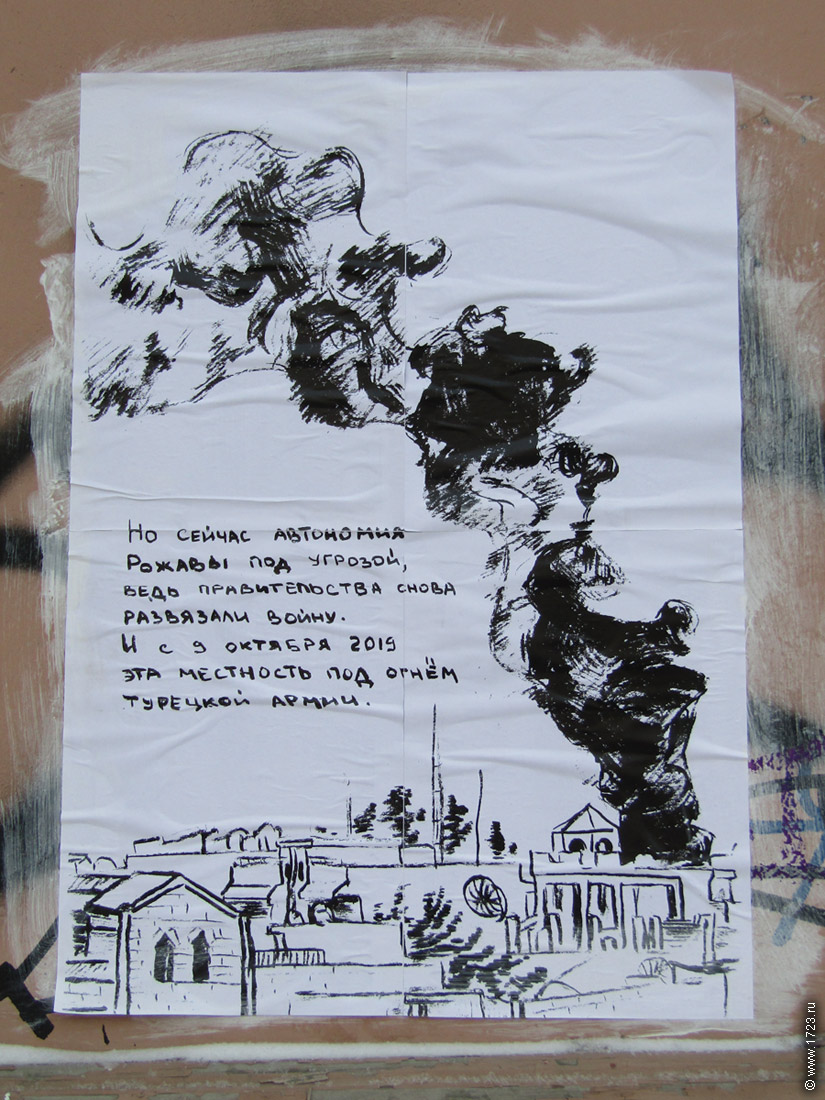 Но сейчас автономия
Рожавы под угрозой,
ведь правительства снова
развязали войну.
И с 9 октября 2019
эта местность под огнём
турецкой армии.
© www.1723.ru